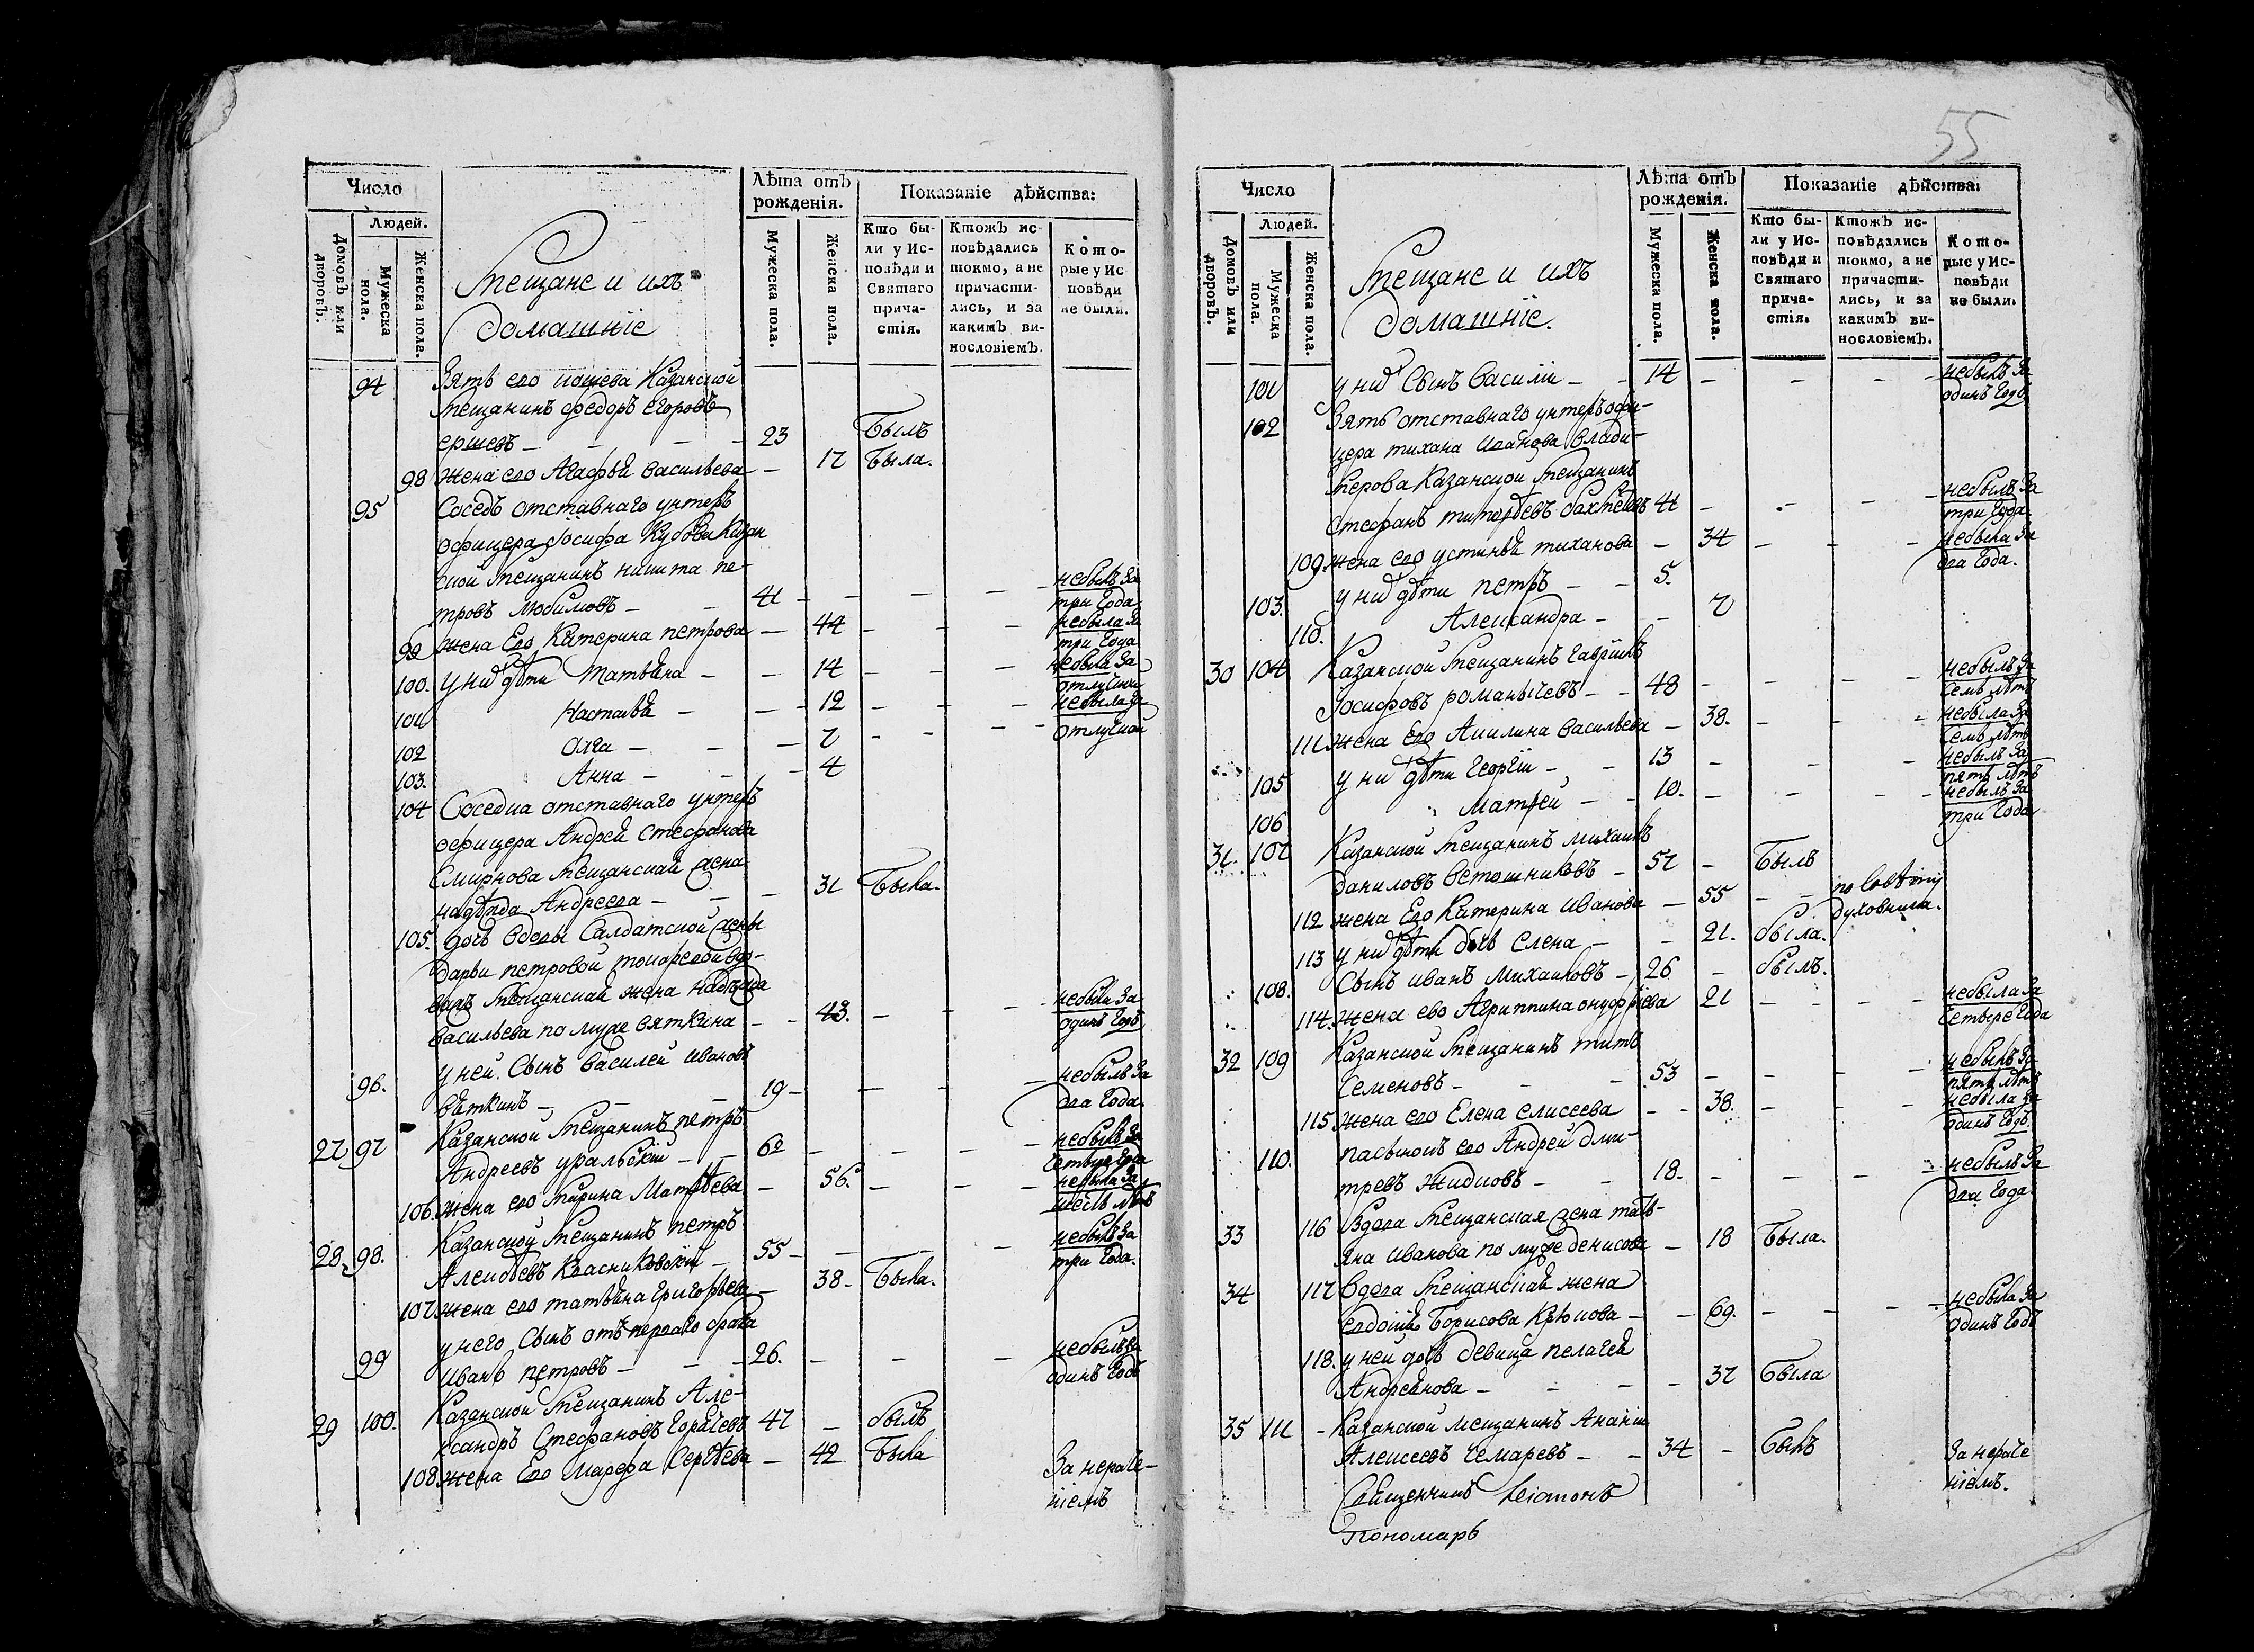 55
Число
Людей.
Домовъ или дворовъ.
Мужеска пола.
Женска пола.
Мещане и ихъ
домашніе
Лѣта отъ рожденія.
Мужеска пола.
Женска пола.
Показаніе дѣйства:
Кто бы-
ли у Ис-
повѣди и
Святаго
прича-
стія.
Ктожъ ис-
повѣдались
токмо, а не
причасти-
лись, и за
какимъ ви-
нословіемъ.
Кото-
рые у Ис
повѣди
не были.
94 Зять его Казанской
мещанинъ Федоръ Егоровъ
ершевъ - 23 Былъ
98 жена его Агафья васильева - 17 Была.
95 Соседъ отставнаго унтеръ
офицера Іосифа Кубова Казан
ской мещанинъ никита пе-
тровъ любимовъ - 41 - небылъ за три Года
99 жена Его Катерина петрова - 44 - небыла за три Года
100. у нихъ дѣти Татьяна - 14 - небыла за отлучкой
101 Настасья - 12 - небыла за отлучкой
102 Олга - 7
103. Анна - 4
104 Соседка отставнаго унтеръ
офицера Андрея Стефанова
Смирнова мещанская жена
надѣжда Андреева - 31 Была.
105. дочь вдовы Салдатской жены
дарьи петровой
мещанская жена надѣжда
васильева по муже вяткина - 43. - небыла за одинъ Годъ
96. у ней Сынъ василей ивановъ
вяткинъ - 19 - небылъ за два Года.
27 97 Казанской мещанинъ петръ
Андреевъ уральскій - 62 - небылъ за четыре Года
106. жена его Марина Матвѣева - 56. - небыла за шесть лѣтъ
28. 98. Казанской мещанинъ петръ
Алексѣевъ Квасниковскій - 55 - небылъ за три Года.
107. жена его татьяна григорьева - 38 - Была.
99 у него Сынъ отъ перваго брака
иванъ петровъ - 26. - небылъ за одинъ Годъ
29 100. Казанской мещанинъ Але-
ксандръ Стефановъ Горячевъ 47 - былъ
108 жена Его Марфа Сергѣева - 42 Была
За нераче-
ніемъ
Число
Людей.
Домовъ или дворовъ.
Мужеска пола.
Женска пола.
Мещане и ихъ
домашніе.
Лѣта отъ рожденія.
Мужеска пола.
Женска пола.
Показаніе дѣйства:
Кто бы-
ли у Ис-
повѣди и
Святаго
прича-
стія.
Ктожъ ис-
повѣдались
токмо, а не
причасти-
лись, и за
какимъ ви-
нословіемъ.
Кото-
рые у Ис-
повѣди
не были.
101 у нихъ Сынъ василій - 14 - небылъ за одинъ Годъ
102 Зять отставнаго унтеръ офи-
цера тихана иванова влади-
мерова Казанской мещанинъ
Стефанъ 41 - небылъ за три Года.
109. жена его устинья тиханова - 34 - небыла за два Года.
103. у нихъ дѣти петръ - 5.
110. Александра - 7
30 104 Казанской мещанинъ гаврилъ
Іосифовъ романычевъ - 48 - небылъ за семь лѣтъ
111 жена его Акилина васильева - 38. - небыла за семь лѣтъ
105 у нихъ дѣти георгій - 13 - небылъ за пять лѣтъ
106 Матфей - 10. - небылъ за три Года
31. 107 Казанской мещанинъ михаилъ
даниловъ ветошниковъ - 57 - Былъ
112 жена Его Катерина иванова - 55 - по совѣту духовника.
113 у нихъ дѣти дочь Елена - 21. была.
108. Сынъ иванъ Михаиловъ - 26 - былъ.
114. жена ево Агриппина онуфріева 21 - небыла за четыре Года
32 109 Казанской мещанинъ титъ
Семеновъ - 53 - небылъ за пять лѣтъ
115 жена его Елена елисеева - 38. - небыла за одинъ Годъ.
110. пасынокъ его Андрей дми-
тревъ жидковъ - 18. - небылъ за два Года.
33 116 Вдова мещанская жена тать-
яна иванова по муже денисова - 18 Была.
34 117 Вдова мещанская жена
евдокия Борисова Крюкова - 69. - небыла за одинъ Годъ
118. у ней дочь девица пелагея
Андреянова - 37 была
35 111 - Казанской мещанинъ Ананій
Алексеевъ чемаревъ - 34 - былъ
За нераче
ніемъ.
Священникъ
Пономарь